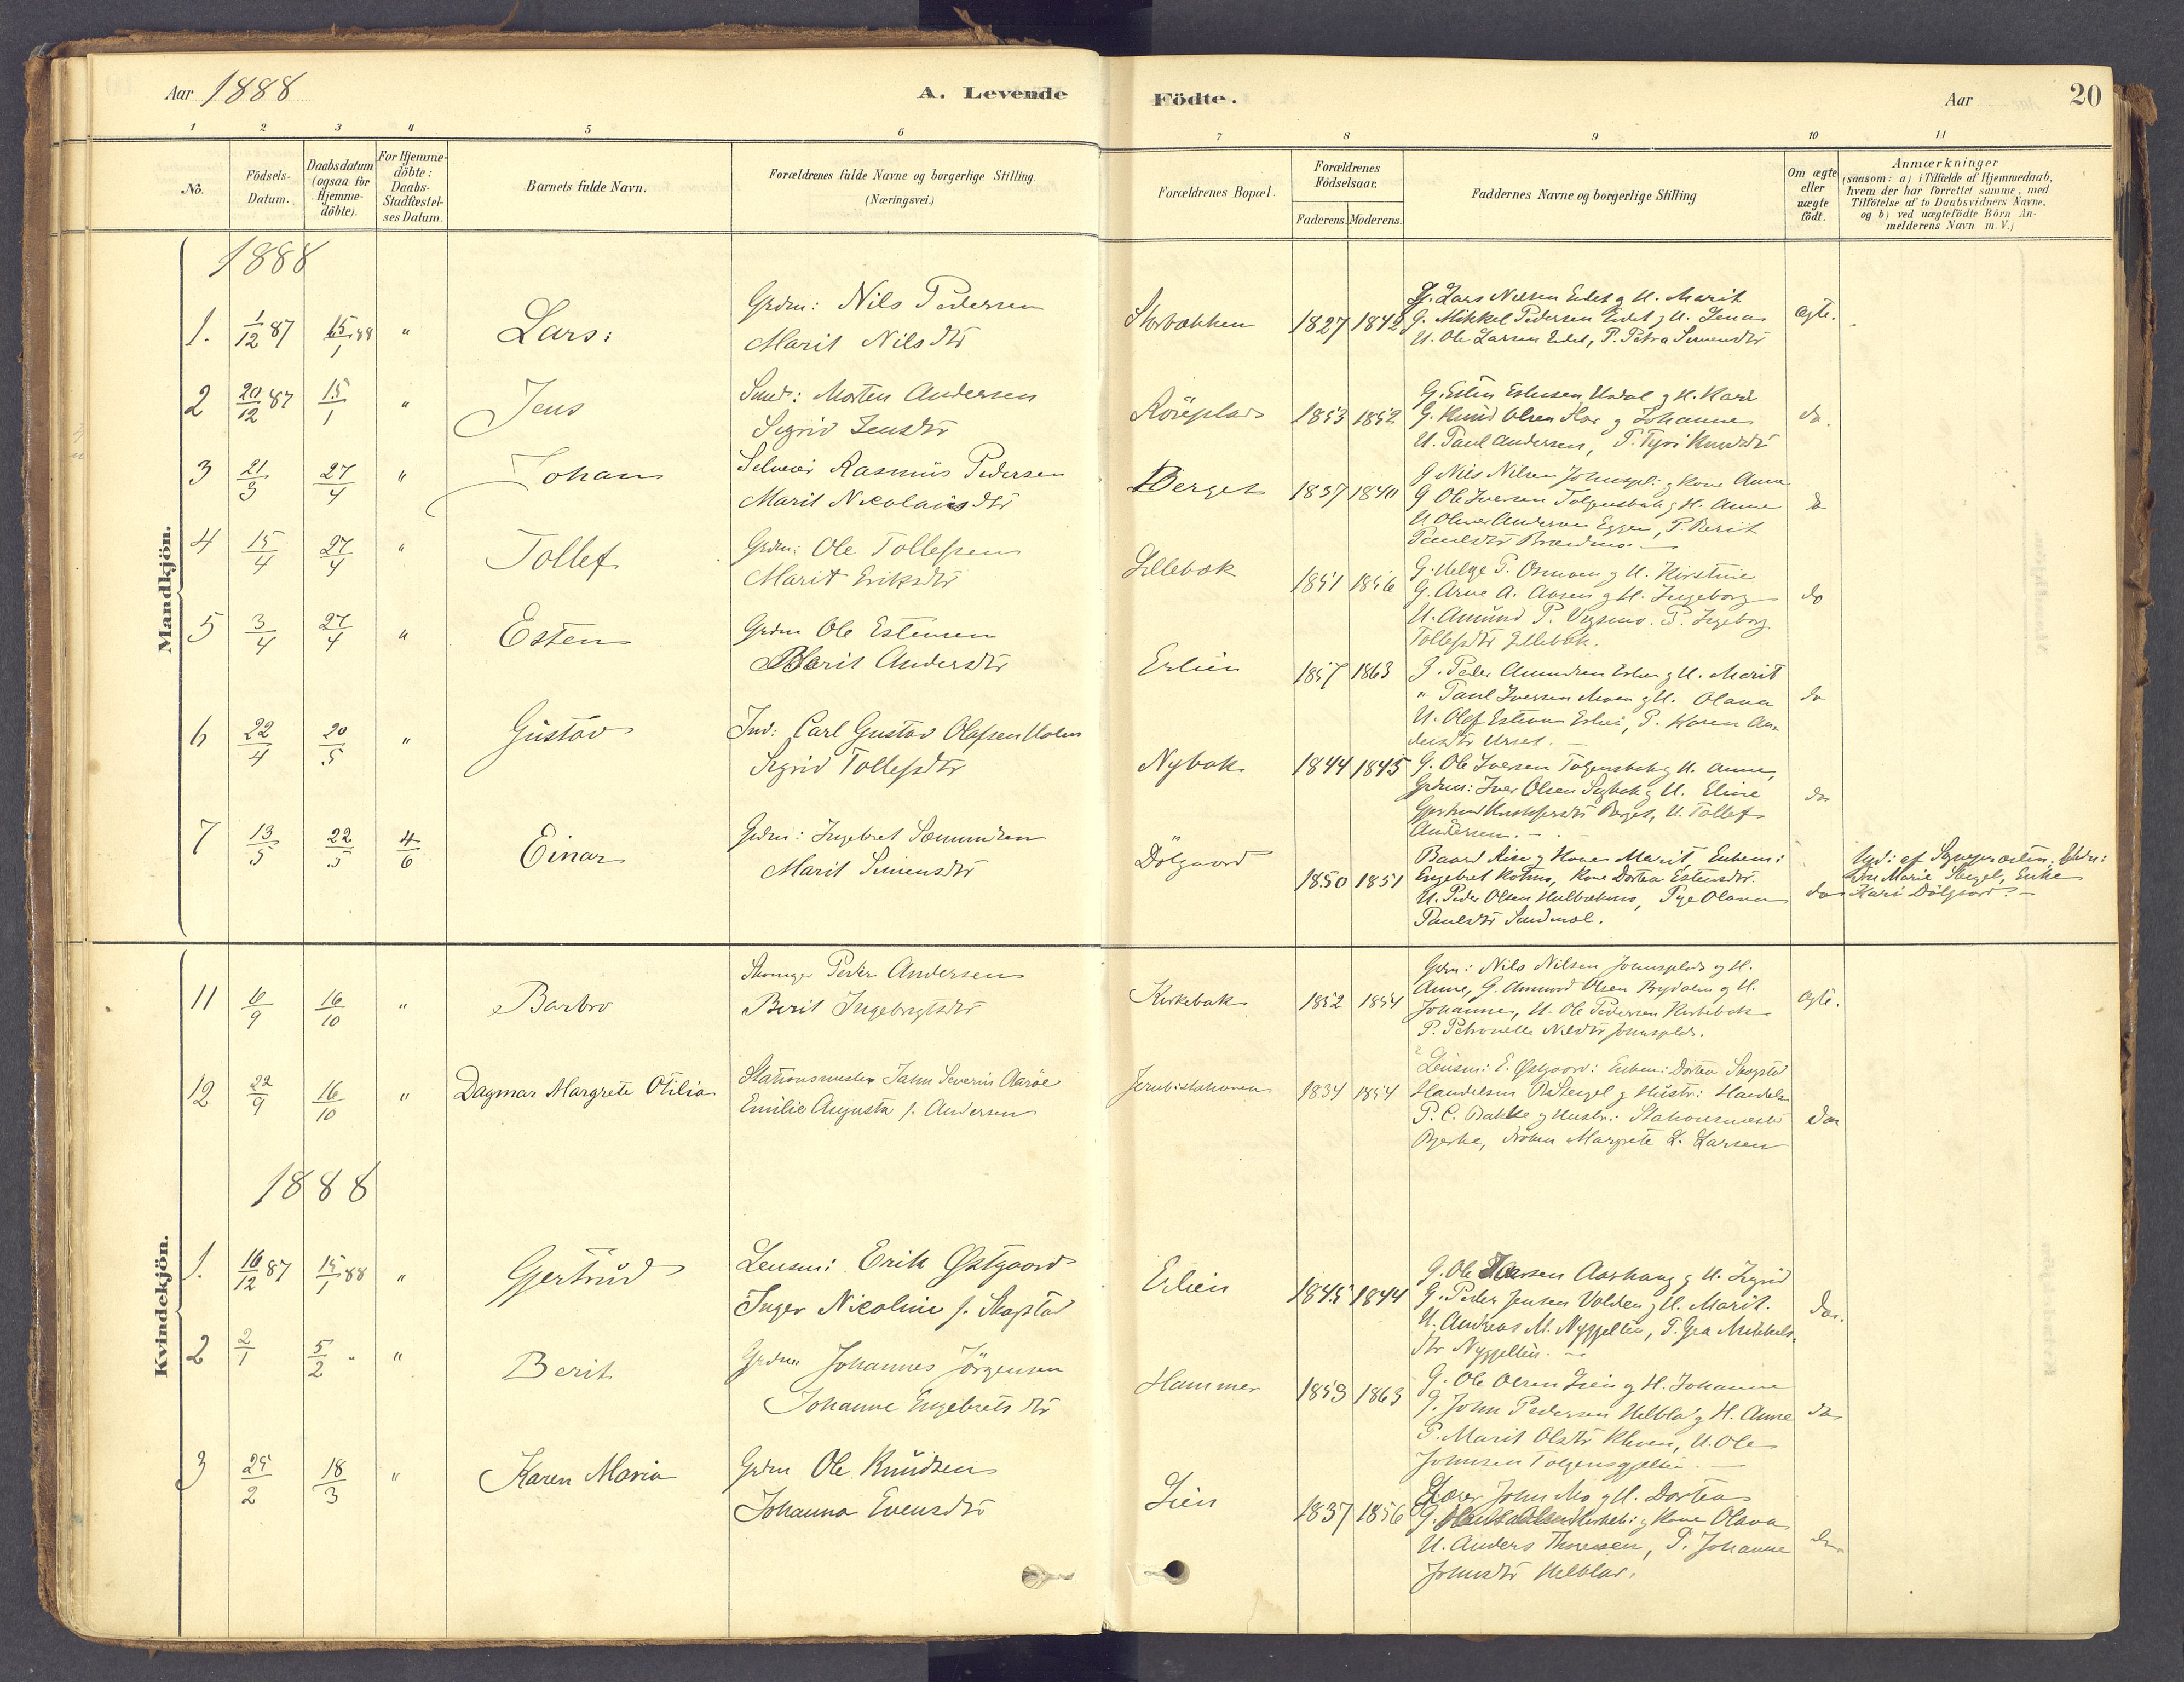 Aar 1888
A. Levende Födte.
Aar
20
1 2 3 4 5 6 7 8 9 10 11
No.
Födsels-
Datum.
Daabsdatum
(ogsaa for
Hjemme-
döbte).
For Hjemme-
döbte:
Daabs-
Stadfæstel-
ses Datum.
Barnets fulde Navn.
Forældrenes fulde Navne og borgerlige Stilling
(Næringsvei.)
Forældrenes Bopæl.
Forældrenes
Födselsaar.
Faderens. Moderens.
Faddernes Navne og borgerlige Stilling
Om ægte
eller
uægte
födt.
Anmærkninger
(saasom: a) i Tilfælde af Hjemmedaab,
hvem der har forrettet samme, med
Tilföielse af to Daabsvidners Navne.
og b) ved uægtefödte Börn An-
melderens Navn m.V.)
Mandkjön.
1888
1. 1/12 87 15/1 88 " Lars:
Grdm: Nils Pedersen
Marit Nilsdtr
1827 1842
G. Lars Nilsen Eidet g H. Marit
G. Mikkel Pedersen Eidet g H. Lena
U. Ole Larsen Eidet, P. Petra Simensdtr
ægte.
2 20/12 87 15/1 " Jens
Smed: Morten Andersen
Sigrid Jensdtr
Röseplads 1853 1852
G. Knud Olsen g Johanne
U. Paul Andersen, P. Knudsdtr
do.
3 21/3 27/4 " Johan
Selveier Rasmus Pedersen
Marit Nicolaisdtr
Berget 1837 1840
G Nils Nilsen Johnspl: g Kone Anne
G Ole Iversen Tolgensbak g H. Anne
U Andersen Eggen, P. Berit
Paulsdtr
do
4 15/4 27/4 " Tollef
Grdm: Ole Tollefsen
Marit Eriksdtr
Lillebæk 1851 1856
G. Helge P. g H. Kirstine
G. Arne A. Aasen g H. Ingeborg
U. Amund P. Vigsmo. P. Ingeborg
Tollefsdtr Lillebæk.
do
5 3/4 27/4 " Esten
Grdm Ole Estensen
Marit Andersdtr
Erlien 1857 1863
G. Peder Amundsen Erlien g H. Marit
" Paul Iversen Moen g H. Olava
U. Olof Estensen Erlien, P. Karen An-
dersdtr Urset.
do
6 22/4 20/5 " Gustav
Ind: Carl Gustav Olafsen Holm
Sigrid Tollefsdtr
Nybæk 1844 1845
G. Ole Iversen Tolgensbak g H. Anne,
Grdm: Iver Olsen g H. Eline
Berget, U. Tollef
Andersen.
do
7 13/5 22/5 4/6 Einar
Grdm: Ingebret Simensen
Marit Simensdtr
Dölgaard 1850 1851
Baard Aise g Kone Marit, Enkem:
Engebret Kotmo, Kone Dortea Estensdtr.
U. Peder Olsen, Pige Olava
Paulsdtr Sandmæl.
do
Marie Stengel, Enke
Kari Dölgaard.
Kvindekjön.
11 6/9 16/10 " Barbro
Peder Andersen
Berit Ingebrigtsdtr
Kirkebak 1852 1854
Grdm: Nils Nilsen Johnsplads og H.
Anne, G. Amund Olsen Brydalen og H.
Johanne, U. Ole Pedersen Kirkebak
P. Petronelle Nilsdtr Johnsplds.
ægte.
12 22/9 16/10 " Dagmar Margrete Otilia
Stationsmester Jahn Severin Aaröe
Emilie Augusta f. Andersen
Jernbistationen 1834 1854
Lensm: E. Østgaard: Enkem: Dortea Skogstad
Handelsm O Stengel g Hustr: Handels
P. C. Bakke g Hustr: Stationsmester
Bjerke, Fröken Margrete L. Larsen
do
1888
1. 16/12 87 15/1 88 " Gjertrud
Lensm: Erik Østgaard
Inger Nicoline f. Skogstad
Erlien 1845 1844
G. Ole Aashaug g H. Sigrid
G. Peder Jensen Volden g H. Marit.
U. Andreas M. Nygjelten, P. Gea Mikkels-
dtr Nygjelten.
do.
2 2/1 5/2 " " Berit
Grdm Johannes Jörgensen
Johanne Engebretsdtr
Hammer 1859 1863
G. Ole Olsen Lien g H. Johanne
G. John Pedersen Helblad g H. Anne
P. Marit Olsdtr Kleven, U. Ole
Johnsen Tolgensgjelten.
do
3 25/2 18/3 " Karen Maria
Grdm Ole Knudsen
Johanna Evensdtr
Lien 1837 1856
Lærer John Mo g H. Dortea
G. g Kone Olava
U. Anders Thoresen, P. Johanne
Johnsdtr Helblad.
do